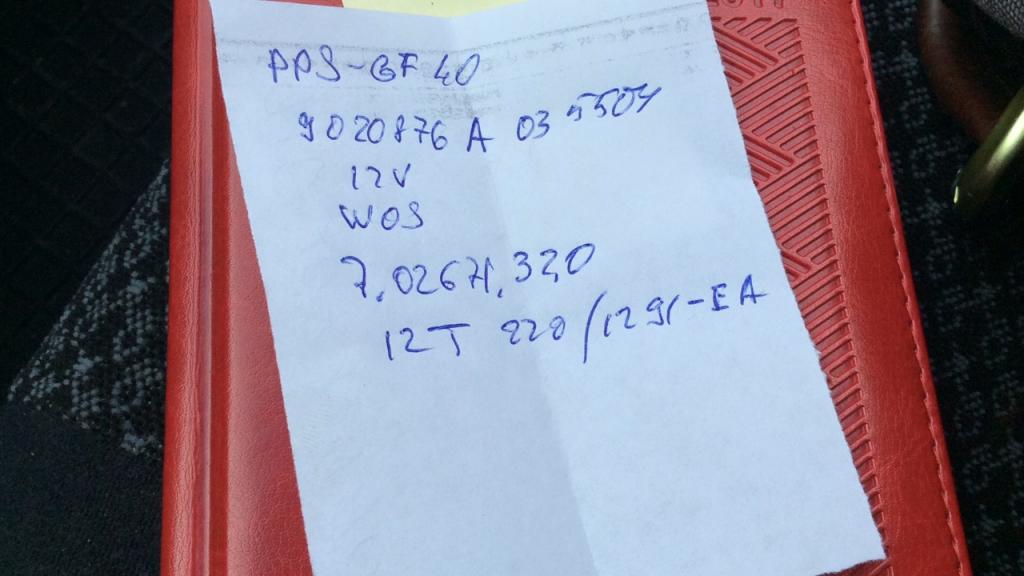 PPS-GF 40
9020876 A 03 5504
12V
WOS
7.02671.320
12T 220/1291-EA